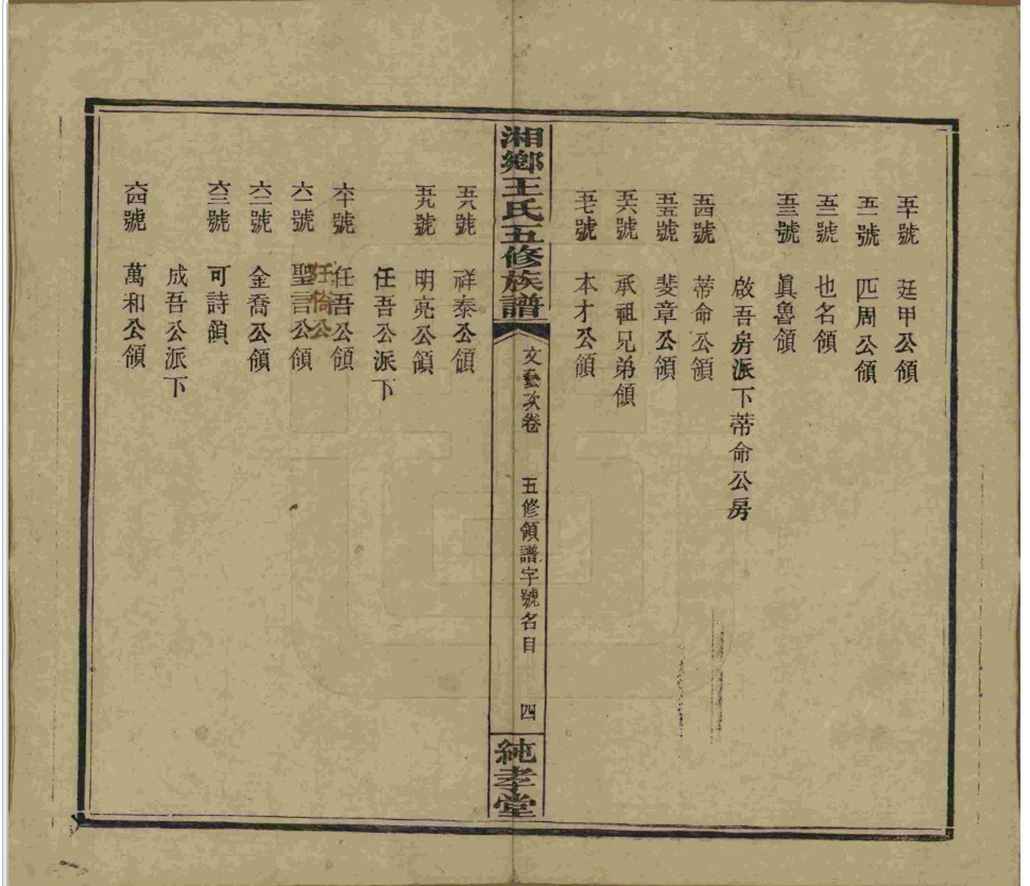 五十號 廷甲公領
五一號 匹周公領
五二號 也名領
五三號 眞魯領
啟吾房派下蒂命公房
五四號 蒂命公領
五五號 斐章公領
五六號 承祖兄弟領
五七號 本才公領
湘鄉王氏五修族譜
文藝次卷 五修領譜字號名目 四
純孝堂
五八號 祥泰公領
五九號 明亮公領
任吾公派下
六十號 任吾公領
六一號 聖言公領
任脩公
六二號 金喬公領
六三號 可詩領
成吾公派下
六四號 萬和公領